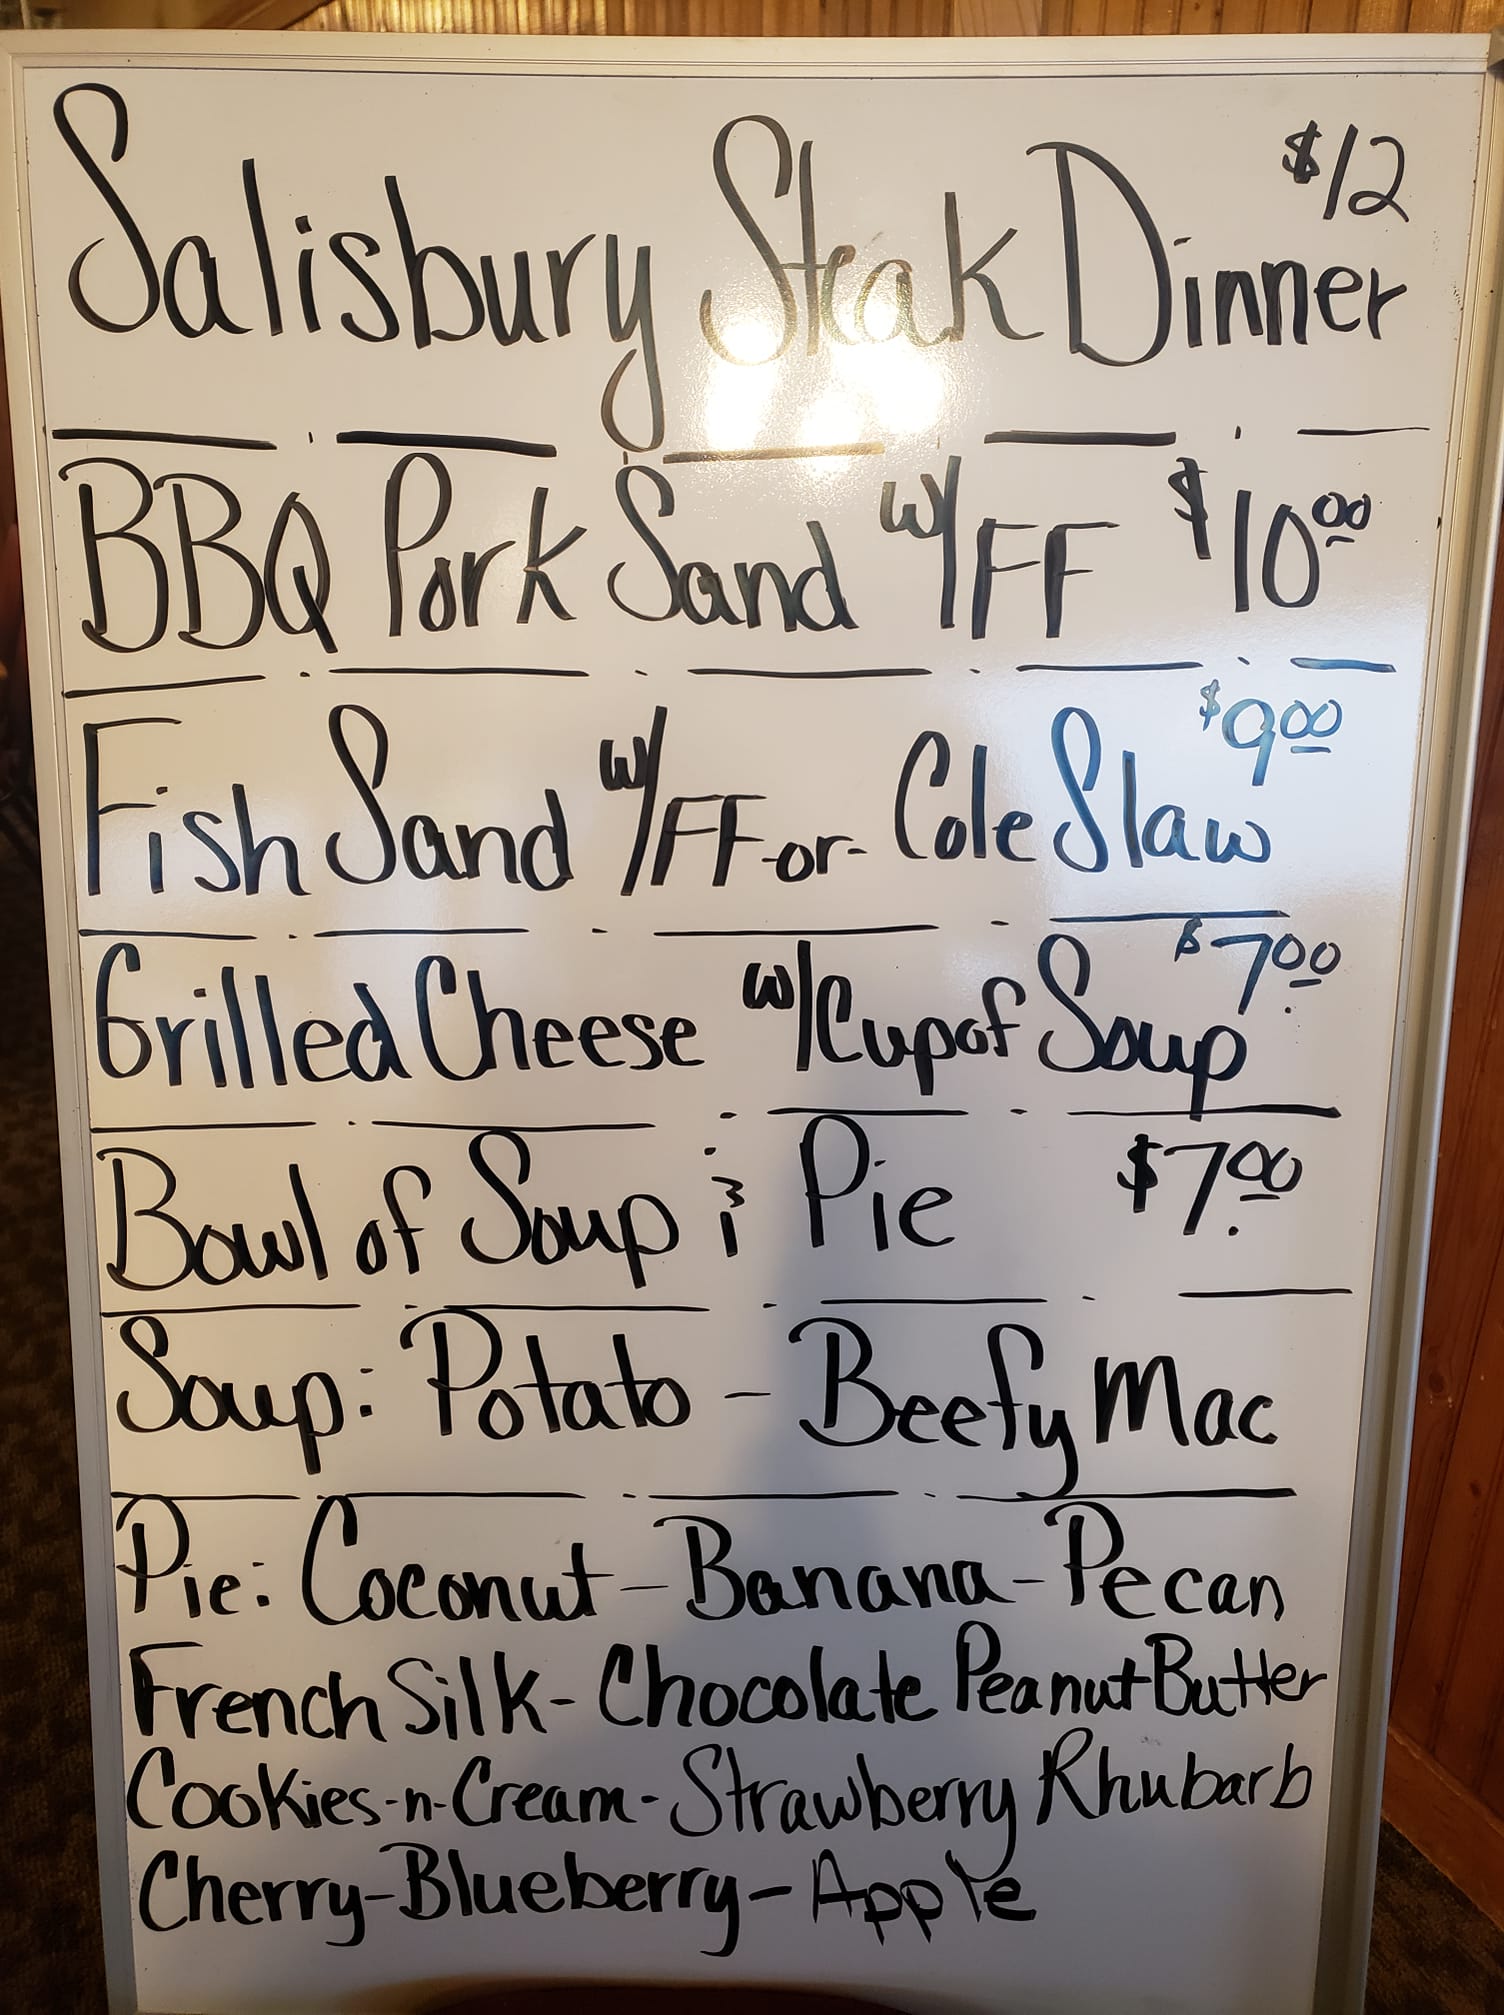 $12
Salisbury Steak Dinner
BBQ Pork Sand w/FF $10.00
$9.00
Fish Sand w/FF-or-Cole Slaw
$7.00
Grilled Cheese w/Cup of Soup
Bowl of Soup & Pie $7.00
Soup: Potato - Beefy Mac
Pie: Coconut - Banana - Pecan
French Silk - Chocolate Peanut Butter
Cookies-n-Cream - Strawberry Rhubarb
Cherry - Blueberry - Apple